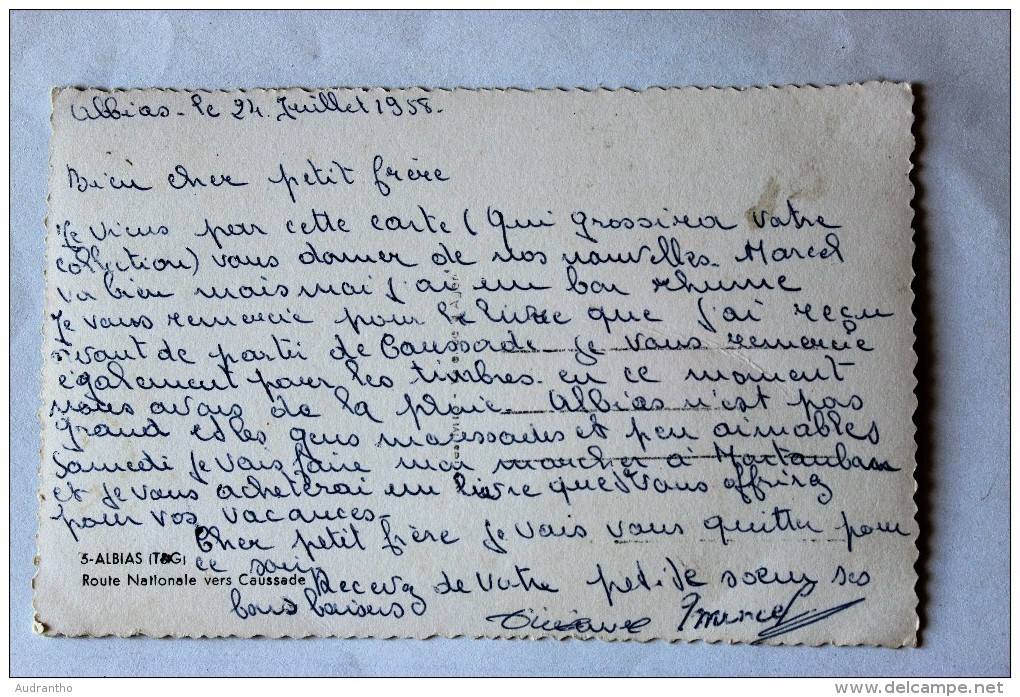 Albias - le 24. Juillet 1958.
Bien cher petit frère
Je viens par cette carte (qui grossira votre
collection) vous donner de nos nouvelles. Marcel
va bien mais moi j'ai un bon rhume
Je vous remercie pour le livre que j'ai reçu
avant de partir de Caussade je vous remercie
également pour les timbres. en ce moment
nous avons de la pluie. Albias n'est pas
grand et les gens maussades et peu aimables
Samedi je vais faire mon marcher à Montauban
et je vous acheterai un livre que vous offrirez
pour vos vacances.
Cher petit frère je vais vous quitter pour
ce soir
Recevez de votre petite soeur ses
bons baisers
5-ALBIAS (T&G)
Route Nationale vers Caussade
Audrantho
www.delcampe.net